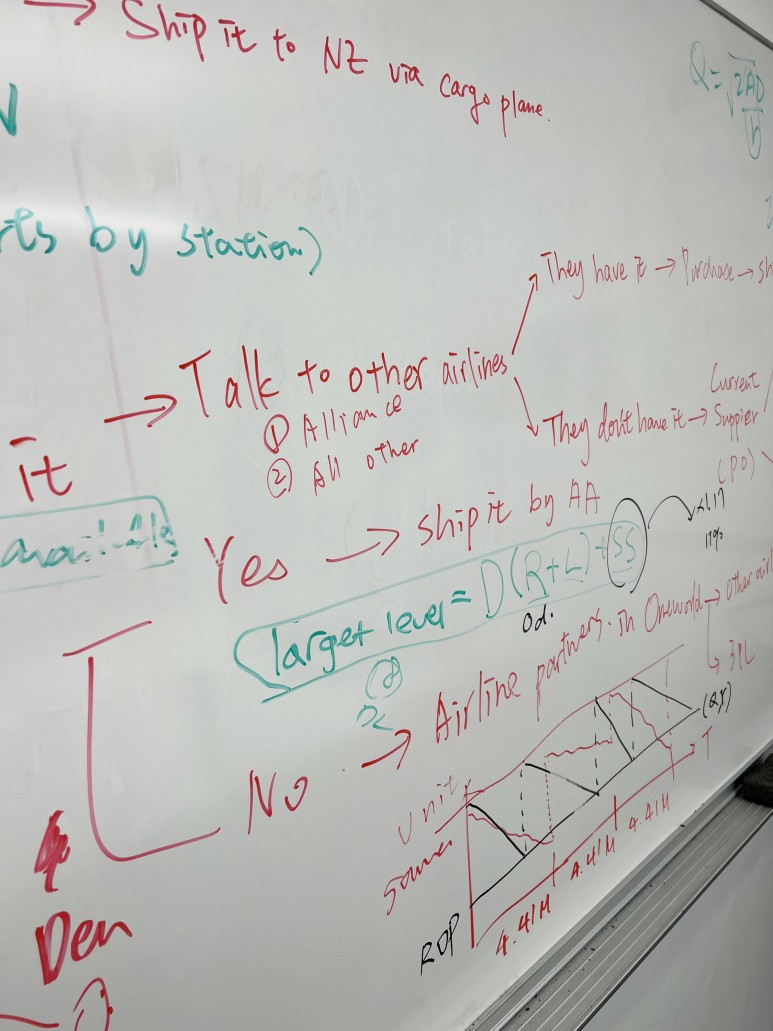 → Ship it to NZ via cargo plane.
Q = √2AD/h
rts by station)
They have it → Purchase → sh
it → Talk to other airlines
① Alliance
② All other
They don't have it → Current Suppier
(PO)
available
Yes → ship it by AA
Target level = D(R+L)+SS
Od.
No → Airline partners in Oneworld → other airl
→ 3PL
(Q,r)
T
Unit
ROP
4.41M
4.41M
4.41M
Den